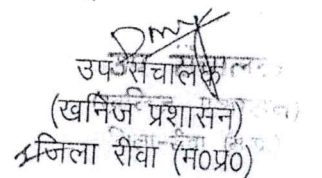 उप संचालक
(खनिज प्रशासन)
जिला रीवा (म०प्र०)